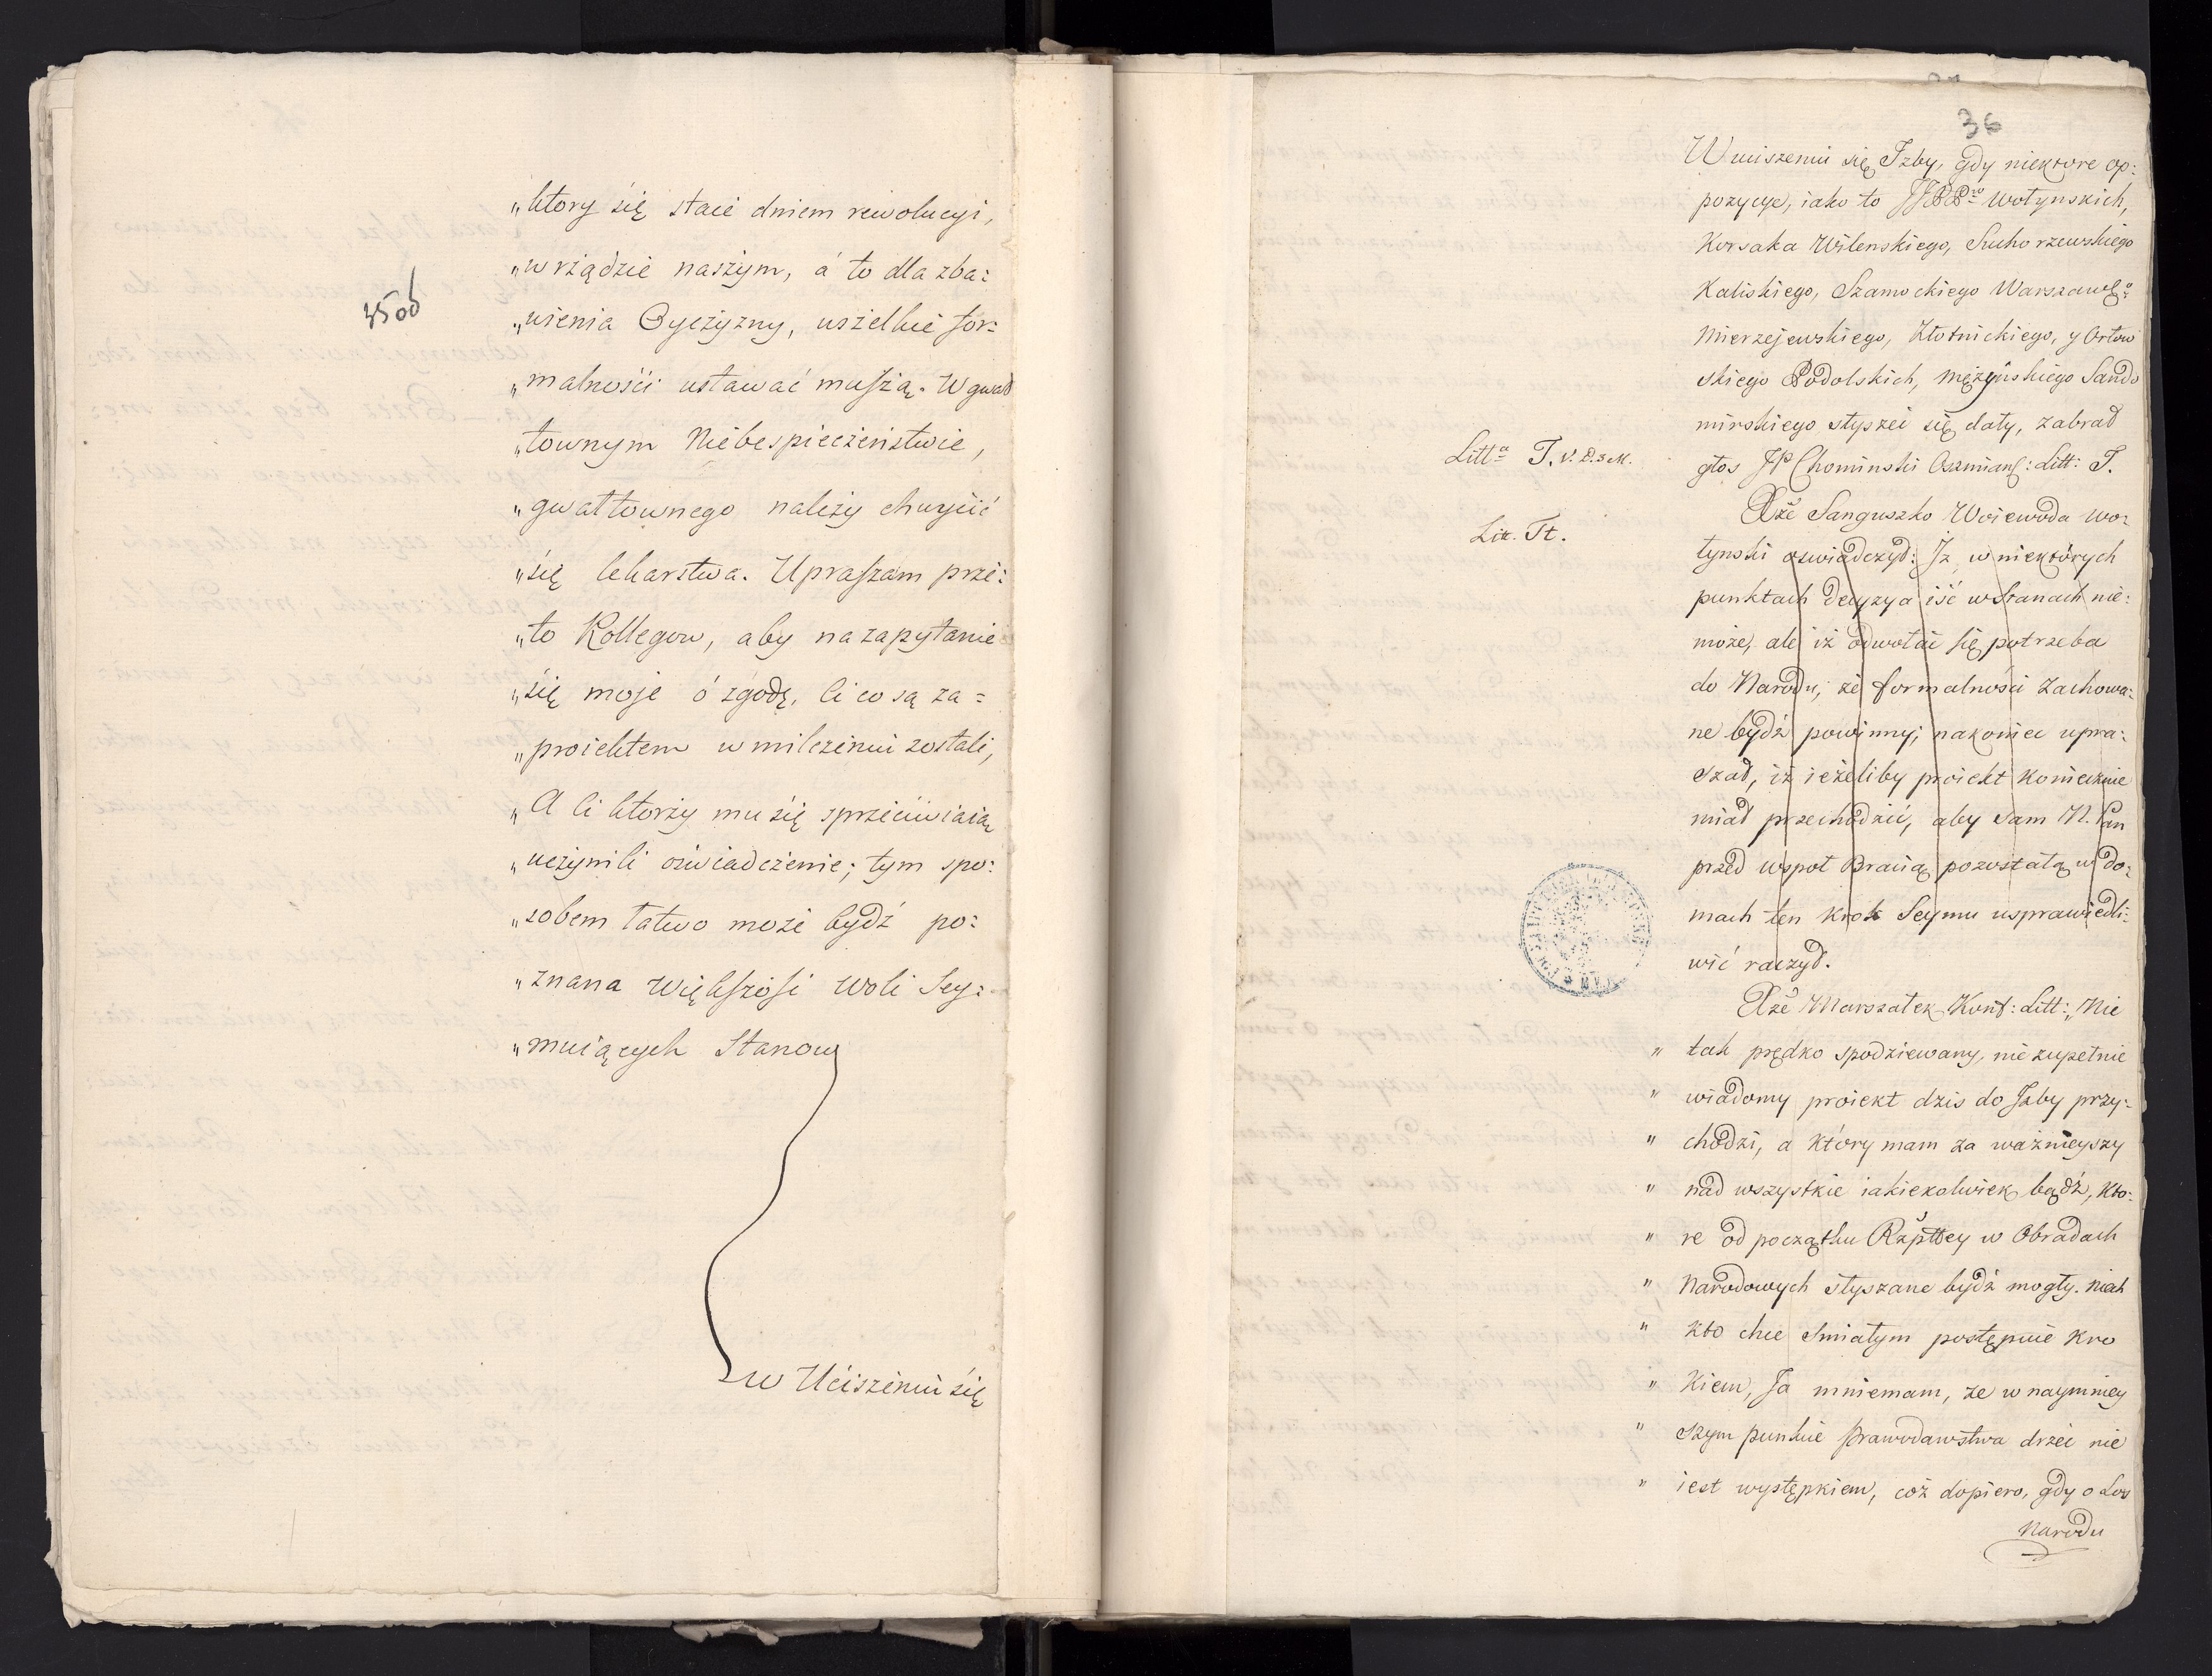 35 od
„który się stać dniem rewolucyi,
„w rządzie naszym, á to dla zba:
„wienia Oyczyzny, wszelkie for:
„malności ustawać muszą. W gwał
„townym Niebespieczeństwie,
„gwałtownego należy chwycić
„się lekarstwa. Upraszam prze:
„to Kollegow, aby na zapytanie
„się moje ó zgodę, Ci co są za =
„proiektem w milczeniu zostali,
„A Ci ktorzy mu się sprzeciwiaią
„uczynili oświadczenie; tym spo:
„sobem łatwo może bydź po:
„znana większość Woli Sey:
„muiących Stanow
w Uciszeniu się
36
W uciszeniu się Izby, gdy niektore op:
pozycye, iako to JJPPw Wołynskich,
Korsaka Wilenskiego, Suchorzewskiego
Kaliskiego, Szamockiego Warszawgo
Mierzejewskiego, Złotnickiego, y Orłow
skiego Podolskich, Mężynskiego Sando
mirskiego słyszeć się dały, zabrał
Litta T. V. D. 3 M.
głos JP Chominski Oszmians: Litt: T.
Lit. Tt.
Xże Sanguszko Woiewoda Wo:
łynski oswiadczył: Iż w niektórych
punktach decyzya iść w Stanach nie:
może, ale iż odwołać się potrzeba
do Narodu, że formalności zachowa:
ne bydź powinny; nakoniec upra:
szał, iż ieżeliby proiekt koniecznie
miał przechodzić, aby sam N. Pan
przed współ Bracią pozostałą w do:
mach ten krok Seymu usprawiedli:
wić raczył.
Xże Marszałek Konf: Litt: „Nie
„ tak prędko spodziewany, nie zupełnie
„ wiadomy proiekt dzis do Izby przy:
„ chodzi, a który mam za ważnieyszy
„ nad wszystkie iakiekolwiek bądź, kto:
„ re od początku Rzpttey w Obradach
„ Narodowych słyszane bydź mogły. Niech
„ kto chce smiałym postępuie kro
„ kiem, Ja mniemam, że w naymniey
„ szym punkcie Prawodawstwa drżeć nie
„ iest występkiem, coż dopiero, gdy o Los
Narodu